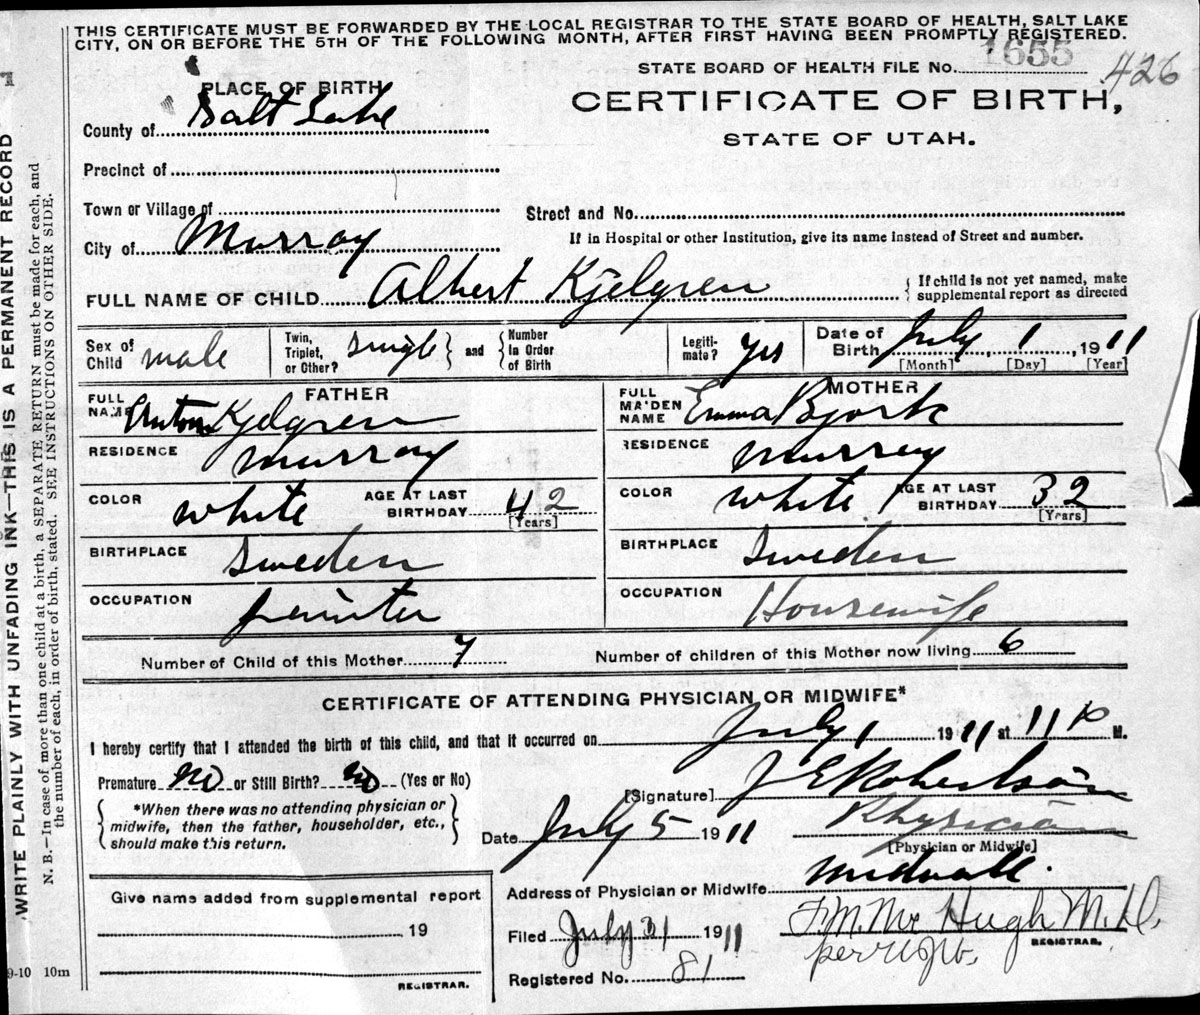 THIS CERTIFICATE MUST BE FORWARDED BY THE LOCAL REGISTRAR TO THE STATE BOARD OF HEALTH, SALT LAKE
CITY, ON OR BEFORE THE 5TH OF THE FOLLOWING MONTH, AFTER FIRST HAVING BEEN PROMPTLY REGISTERED.
STATE BOARD OF HEALTH FILE No. 1655 426
PLACE OF BIRTH
CERTIFICATE OF BIRTH,
County of Salt Lake
STATE OF UTAH.
Precinct of
Town or Village of
Street and No.
City of Murray
If in Hospital or other Institution, give its name instead of Street and number.
FULL NAME OF CHILD Albert Kjelgren { If child is not yet named, make supplemental report as directed
Sex of Child male
Twin, Triplet, or Other? single } and { Number in Order of Birth
Legitimate? yes
Date of Birth July 1, 1911
[Month] [Day] [Year]
FATHER
FULL NAME Anton Kjelgren
RESIDENCE Murray
COLOR white AGE AT LAST BIRTHDAY 42
[Years]
BIRTHPLACE Sweden
OCCUPATION painter
MOTHER
FULL MAIDEN NAME Emma Bjork
RESIDENCE Murray
COLOR white AGE AT LAST BIRTHDAY 32
[Years]
BIRTHPLACE Sweden
OCCUPATION Housewife
Number of Child of this Mother 7 Number of children of this Mother now living 6
CERTIFICATE OF ATTENDING PHYSICIAN OR MIDWIFE*
I hereby certify that I attended the birth of this child, and that it occurred on July 1 1911 at 11 P M.
Premature no or Still Birth? no (Yes or No)
[Signature] J E Robertson
{ *When there was no attending physician or
midwife, then the father, householder, etc.,
should make this return. }
Date July 5 1911 Physician
[Physician or Midwife]
Address of Physician or Midwife Midvale.
Give name added from supplemental report
19
REGISTRAR.
Filed July 31 1911 F.M. McHugh M.D.
REGISTRAR.
per
Registered No. 81
9-10 10m
WRITE PLAINLY WITH UNFADING INK—THIS IS A PERMANENT RECORD
N. B.—In case of more than one child at a birth, a SEPARATE RETURN must be made for each, and
the number of each, in order of birth, stated. SEE INSTRUCTIONS ON OTHER SIDE.